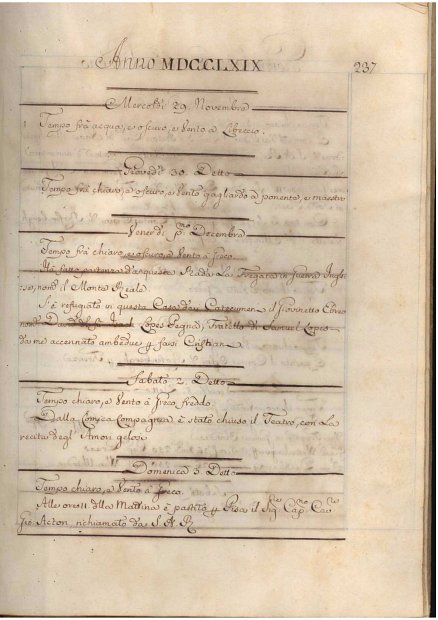 Anno MDCCLXIX
237
Mercoldì 29 Novembra
Tempo frà acqua, e oscuro, e Vento à Libeccio.
Giovedì 30. Detto
Tempo frà chiaro, e oscuro, e Vento gagliardo à ponente, e maestro
Venerdì pmo Decembra
Tempo frà chiaro, e oscuro, e Vento à Greco.
Hà fatto partenza da questa Rada La Fregata in guerra Ingle
se, nom. il Monte Reale.
Si è refugiato in questa Casa dei Catecumeni il Giovinetto Ebreo
nom. Lopes Pegna, Fratello di Samuel Lopes
da me accennato ambedue farsi Cristiani
Sabato 2. Detto
Tempo chiaro, e Vento à Greco freddo.
Dalla Comica Compagnia è stato chiuso il Teatro, con La
recita degl' Amori gelosi
Domenica 3 Detto
Tempo chiaro, e Vento à Greco.
Alle ore 11 della Mattina è partito Pisa il Sigre Capno Cav
Gio Acton, richiamato da S. A. R.